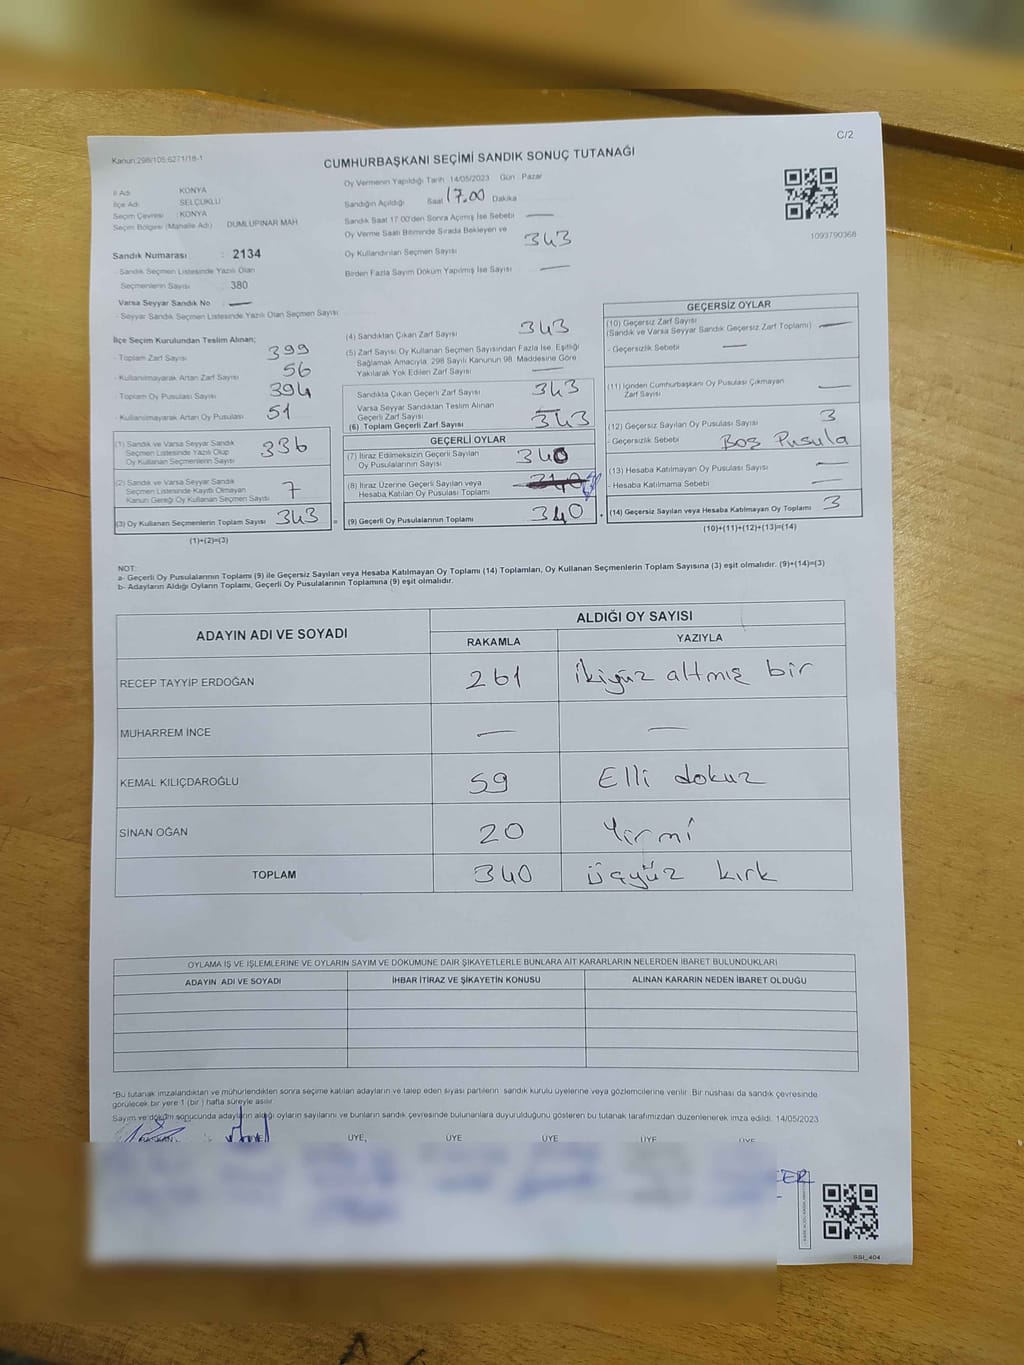 C/2
Kanun:298/105 6271/18-1
CUMHURBAŞKANI SEÇİMİ SANDIK SONUÇ TUTANAĞI
İl Adı KONYA
İlçe Adı SELÇUKLU
Seçim Çevresi : KONYA
Seçim Bölgesi (Mahalle Adı) DUMLUPINAR MAH
Sandık Numarası : 2134
- Sandık Seçmen Listesinde Yazılı Olan
Seçmenlerin Sayısı : 380
Varsa Seyyar Sandık No —
- Seyyar Sandık Seçmen Listesinde Yazılı Olan Seçmen Sayısı
Oy Vermenin Yapıldığı Tarih 14/05/2023 Gün Pazar
Sandığın Açıldığı Saat 17.00 Dakika
Sandık Saat 17:00'den Sonra Açımış İse Sebebi —
Oy Verme Saati Bitiminde Sırada Bekleyen ve
Oy Kullandırılan Seçmen Sayısı 343
Birden Fazla Sayım Döküm Yapılmış İse Sayısı —
1093790368
İlçe Seçim Kurulundan Teslim Alınan;
- Toplam Zarf Sayısı 399
- Kullanılmayarak Artan Zarf Sayısı 56
- Toplam Oy Pusulası Sayısı 394
- Kullanılmayarak Artan Oy Pusulası 51
(1) Sandık ve Varsa Seyyar Sandık
Seçmen Listesinde Yazılı Olup
Oy Kullanan Seçmenlerin Sayısı 336
(2) Sandık ve Varsa Seyyar Sandık
Seçmen Listesinde Kayıtlı Olmayan
Kanun Gereği Oy Kullanan Seçmen Sayısı 7
(3) Oy Kullanan Seçmenlerin Toplam Sayısı 343
(1)+(2)=(3)
(4) Sandıktan Çıkan Zarf Sayısı 343
(5) Zarf Sayısı Oy Kullanan Seçmen Sayısından Fazla İse, Eşitliği
Sağlamak Amacıyla, 298 Sayılı Kanunun 98. Maddesine Göre
Yakılarak Yok Edilen Zarf Sayısı —
Sandıkta Çıkan Geçerli Zarf Sayısı 343
Varsa Seyyar Sandıktan Teslim Alınan
Geçerli Zarf Sayısı —
(6) Toplam Geçerli Zarf Sayısı 343
GEÇERLİ OYLAR
(7) İtiraz Edilmeksizin Geçerli Sayılan
Oy Pusulalarının Sayısı 340
(8) İtiraz Üzerine Geçerli Sayılan veya
Hesaba Katılan Oy Pusulası Toplamı 340
(9) Geçerli Oy Pusulalarının Toplamı 340
GEÇERSİZ OYLAR
(10) Geçersiz Zarf Sayısı
(Sandık ve Varsa Seyyar Sandık Geçersiz Zarf Toplamı) —
- Geçersizlik Sebebi —
(11) İçinden Cumhurbaşkanı Oy Pusulası Çıkmayan
Zarf Sayısı —
(12) Geçersiz Sayılan Oy Pusulası Sayısı 3
- Geçersizlik Sebebi Boş Pusula
(13) Hesaba Katılmayan Oy Pusulası Sayısı —
- Hesaba Katılmama Sebebi —
(14) Geçersiz Sayılan veya Hesaba Katılmayan Oy Toplamı 3
(10)+(11)+(12)+(13)=(14)
NOT:
a- Geçerli Oy Pusulalarının Toplamı (9) ile Geçersiz Sayılan veya Hesaba Katılmayan Oy Toplamı (14) Toplamları, Oy Kullanan Seçmenlerin Toplam Sayısına (3) eşit olmalıdır. (9)+(14)=(3)
b- Adayların Aldığı Oyların Toplamı, Geçerli Oy Pusulalarının Toplamına (9) eşit olmalıdır.
ADAYIN ADI VE SOYADI
ALDIĞI OY SAYISI
RAKAMLA YAZIYLA
RECEP TAYYİP ERDOĞAN 261 İkiyüz altmış bir
MUHARREM İNCE — —
KEMAL KILIÇDAROĞLU 59 Elli dokuz
SİNAN OĞAN 20 Yirmi
TOPLAM 340 üçyüz kırk
OYLAMA İŞ VE İŞLEMLERİNE VE OYLARIN SAYIM VE DÖKÜMÜNE DAİR ŞİKAYETLERLE BUNLARA AİT KARARLARIN NELERDEN İBARET BULUNDUKLARI
ADAYIN ADI VE SOYADI İHBAR İTİRAZ VE ŞİKAYETİN KONUSU ALINAN KARARIN NEDEN İBARET OLDUĞU
*Bu tutanak imzalandıktan ve mühürlendikten sonra seçime katılan adayların ve talep eden siyasi partilerin sandık kurulu üyelerine veya gözlemcilerine verilir. Bir nushası da sandık çevresinde
görülecek bir yere 1 (bir ) hafta süreyle asılır.
Sayım ve döküm sonucunda adayların aldığı oyların sayılarını ve bunların sandık çevresinde bulunanlara duyurulduğunu gösteren bu tutanak tarafımızdan düzenlenerek imza edildi. 14/05/2023
BAŞKAN ÜYE, ÜYE, ÜYE ÜYE ÜYE ÜYE
SSI_404